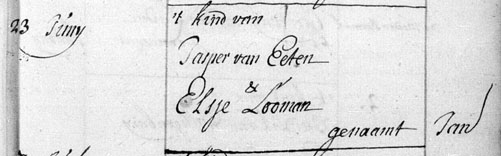 't kind van
23 Juny
Jasper van Eeten
&
Elsje Looman
genaamt Jan